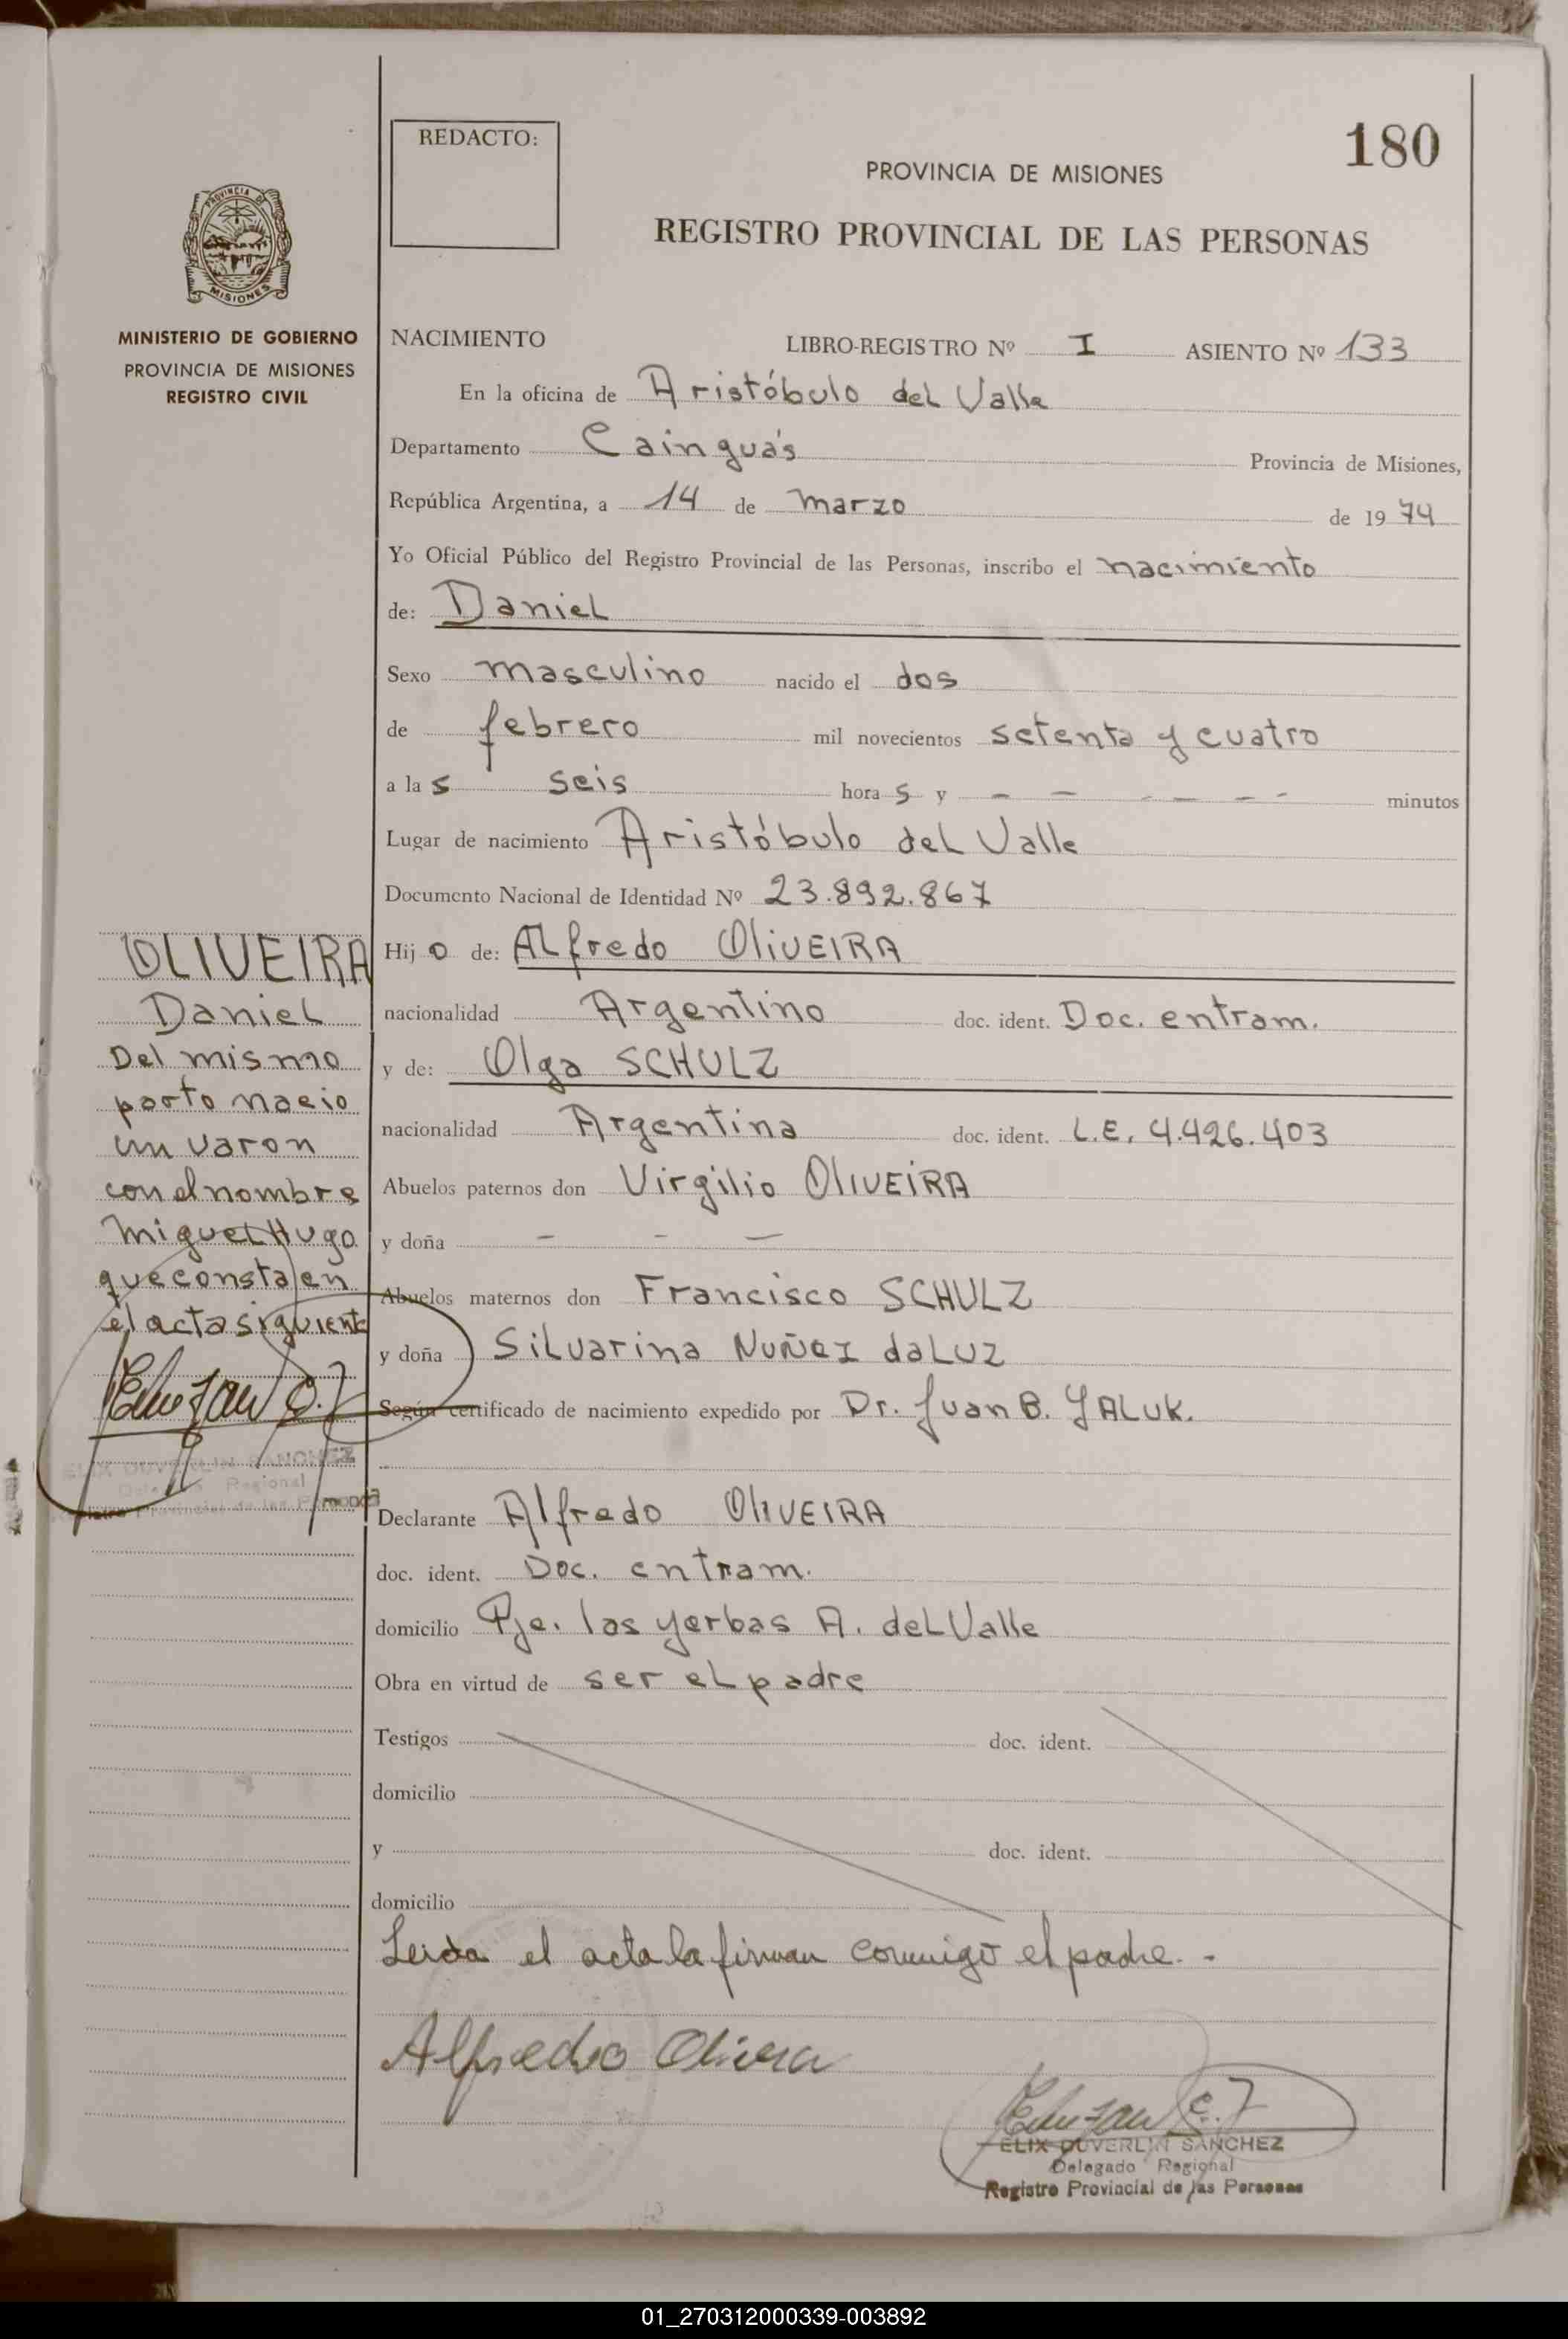 180
REDACTO:
PROVINCIA DE MISIONES
REGISTRO PROVINCIAL DE LAS PERSONAS
PROVINCIA DE
MISIONES
MINISTERIO DE GOBIERNO
PROVINCIA DE MISIONES
REGISTRO CIVIL
NACIMIENTO LIBRO-REGISTRO Nº I ASIENTO Nº 133
En la oficina de Aristóbulo del Valle
Departamento Cainguás Provincia de Misiones,
República Argentina, a 14 de marzo de 1974
Yo Oficial Público del Registro Provincial de las Personas, inscribo el nacimiento
de: Daniel
Sexo masculino nacido el dos
de febrero mil novecientos setenta y cuatro
a las seis horas y - - - - - - minutos
Lugar de nacimiento Aristóbulo del Valle
Documento Nacional de Identidad Nº 23.892.867
Hijo de: Alfredo OliVEIRA
nacionalidad Argentino doc. ident. Doc. entram.
y de: Olga SCHULZ
nacionalidad Argentina doc. ident. L.E. 4.426.403
Abuelos paternos don Virgilio OlIVEIRA
y doña - - -
Abuelos maternos don Francisco SCHULZ
y doña Silvarina NuÑez daLUZ
Según certificado de nacimiento expedido por Dr. Juan B. YALUK.
Declarante Alfredo OliVEIRA
doc. ident. Doc. entram.
domicilio Pje. las yerbas A. del Valle
Obra en virtud de ser el padre
Testigos doc. ident.
domicilio
y doc. ident.
domicilio
Leida el acta la firman conmigo el padre. -
Alfredo Olivera
ELIX DUVERLIN SANCHEZ
Delegado Regional
Registro Provincial de las Personas
OLIVEIRA
Daniel
Del mismo
parto nacio
un varon
con el nombre
Miguel Hugo
que consta en
el acta siguiente
ELIX DUVERLIN SANCHEZ
Delegado Regional
Registro Provincial de las Personas
01_270312000339-003892